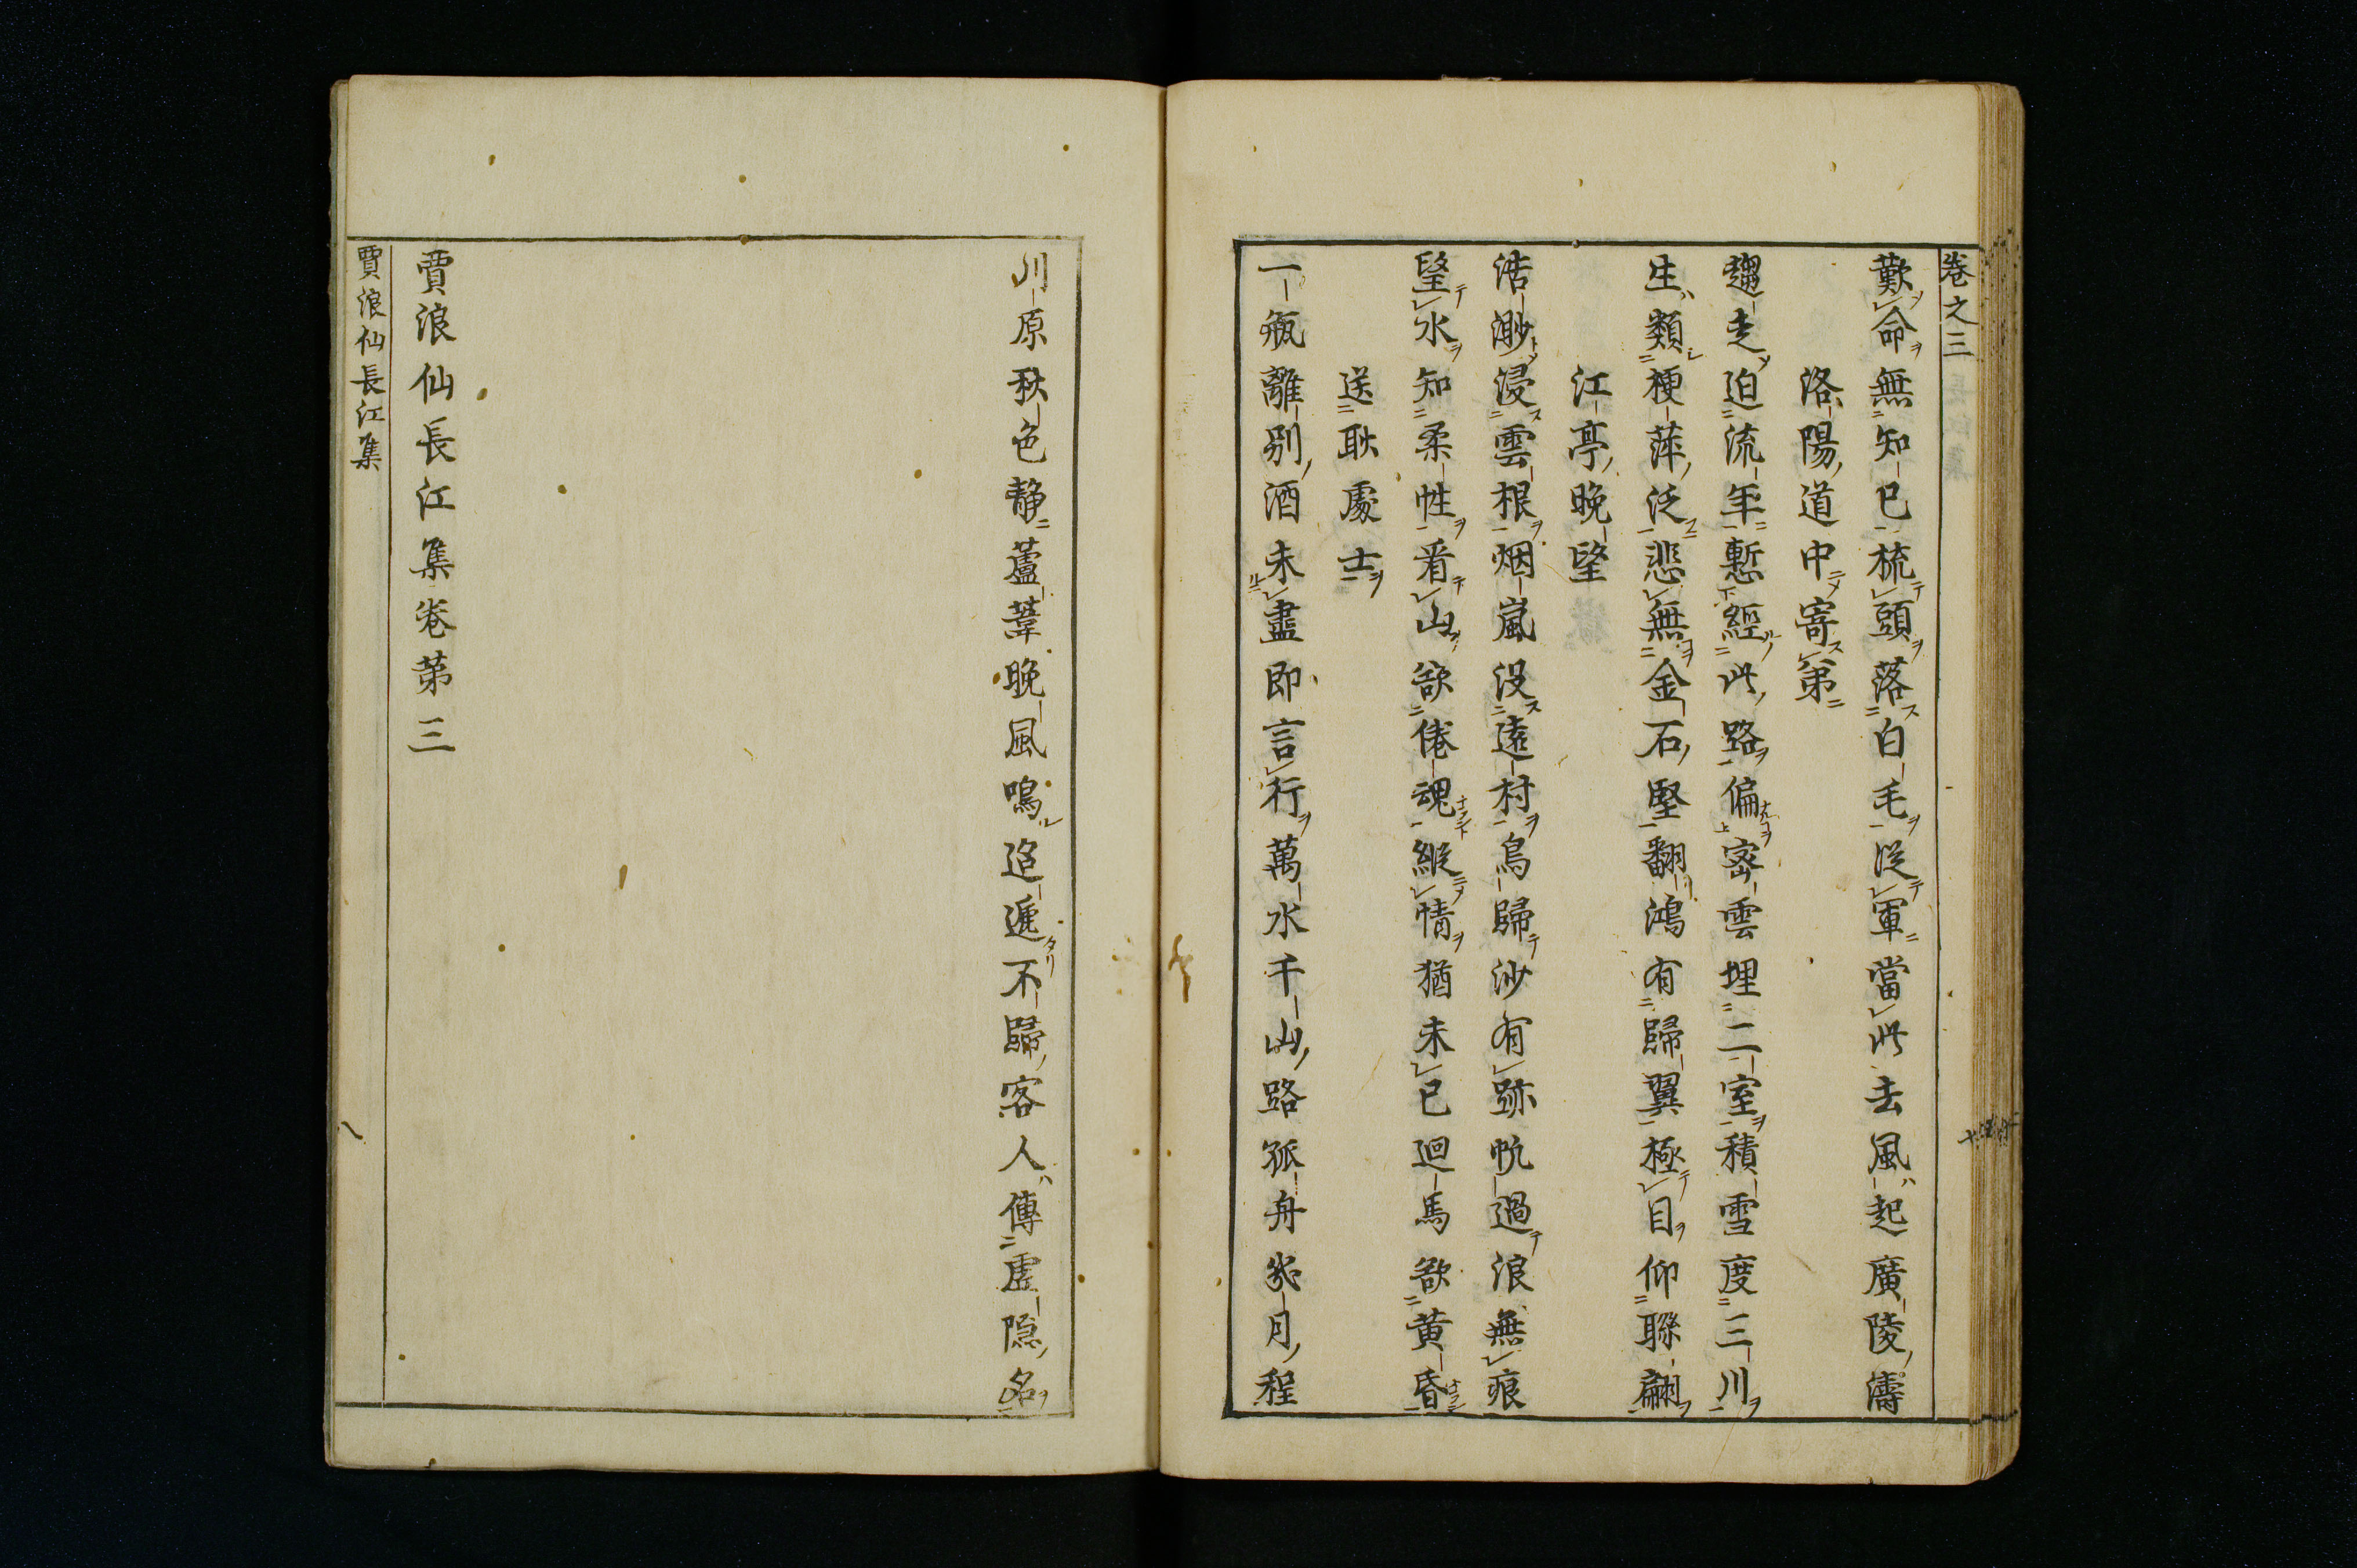 卷之三
歎命無知已梳頭落白毛從軍當此去風起廣陵濤
洛陽道中寄第
趨走迫流年慙經此路偏密雲埋二室積雪度三川
生類梗萍泛悲無金石堅翻鴻有歸翼極目仰聯翩
江亭晚望
浩渺浸雲根烟嵐没遠村鳥歸沙有跡帆過浪無痕
望水知柔性看山欲倦魂縱情猶未已迴馬欲黄昏
送耿處士
一瓶離别酒未盡即言行萬水千山路孤舟幾月程
川原秋色静蘆葦晚風鳴迢遞不歸客人傳虚隠名
賈浪仙長江集卷第三
賈浪仙長江集